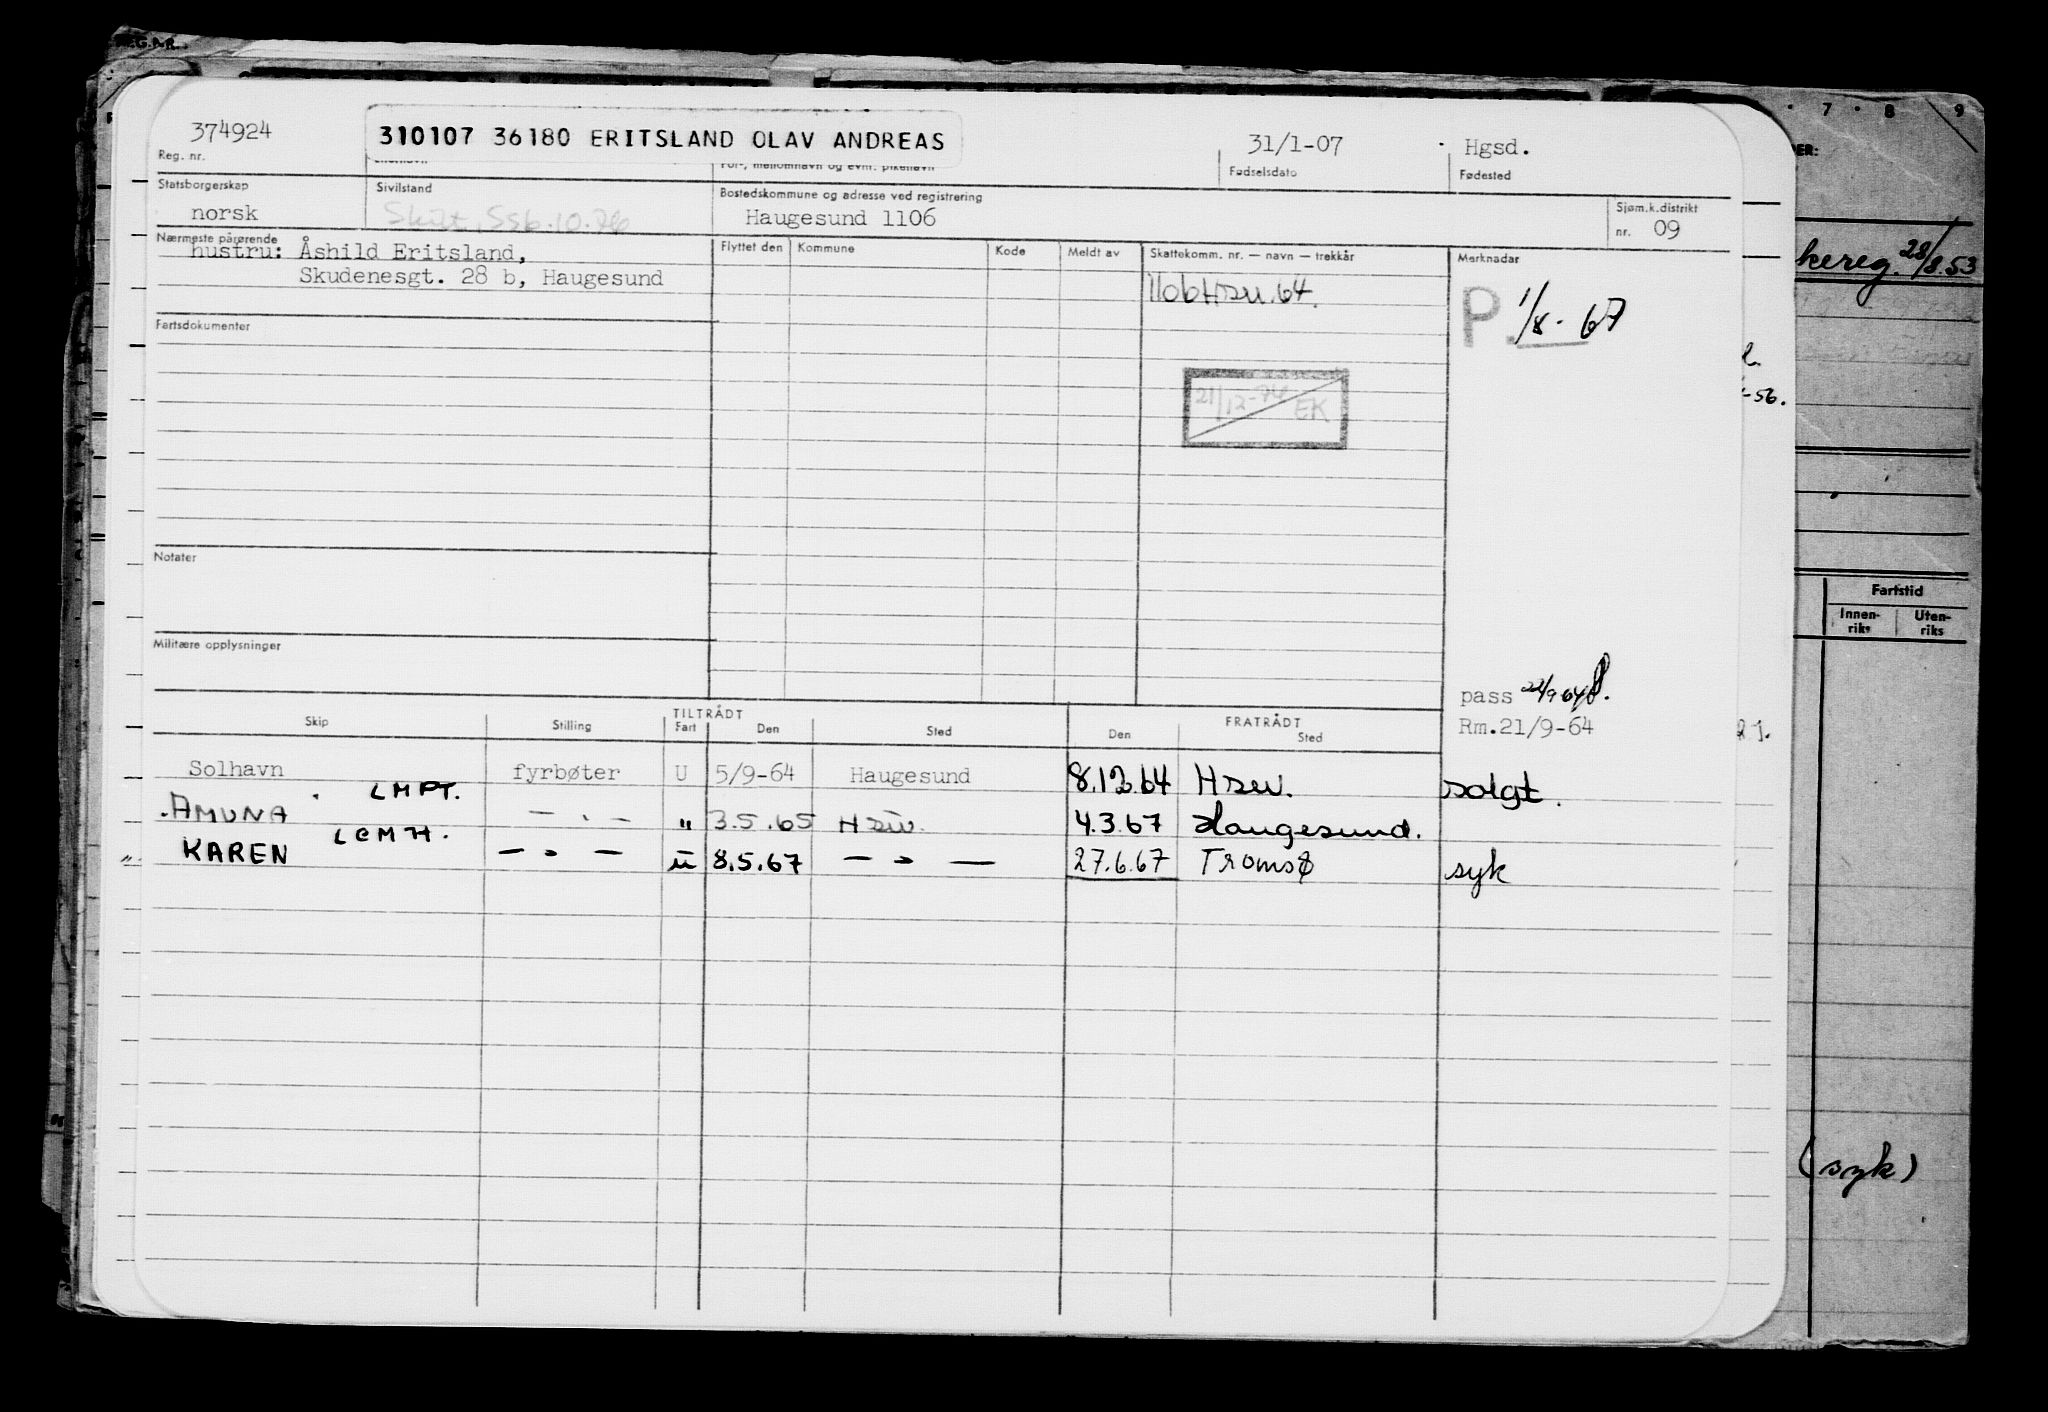 REG.NR.
7 8 9
374924
310107 36180 ERITSLAND OLAV ANDREAS
31/1-07
Hgsd.
Reg. nr.
For-, mellomnavn og evnt. pikenavn
Fødselsdato
Fødested
Statsborgerskap
Sivilstand
Bostedskommune og adresse ved registrering
Sjøm.k.distrikt
norsk
Haugesund 1106
nr. 09
Nærmeste pårørende
hustru: Åshild Eritsland,
Skudenesgt. 28 b, Haugesund
Flyttet den
Kommune
Kode
Meldt av
Skattekomm. nr. — navn — trekkår
Merknader
kereg. 28/8.53
P. 1/8-67
Fartsdokumenter
21/12-74 EK
-56.
Notater
Fartstid
Innen-riks
Uten-riks
Militære opplysninger
pass 22/9 64
Rm.21/9-64
2 j.
TILTRÅDT
FRATRÅDT
Skip
Stilling
Fart
Den
Sted
Den
Sted
Solhavn LMPT. fyrbøter U 5/9-64 Haugesund 8.12.64 solgt.
AMUNA LCMH. — . — " 3.5.65 4.3.67 Haugesund.
KAREN — " — ü 8.5.67 — " — 27.6.67 Tromsø syk
(syk)